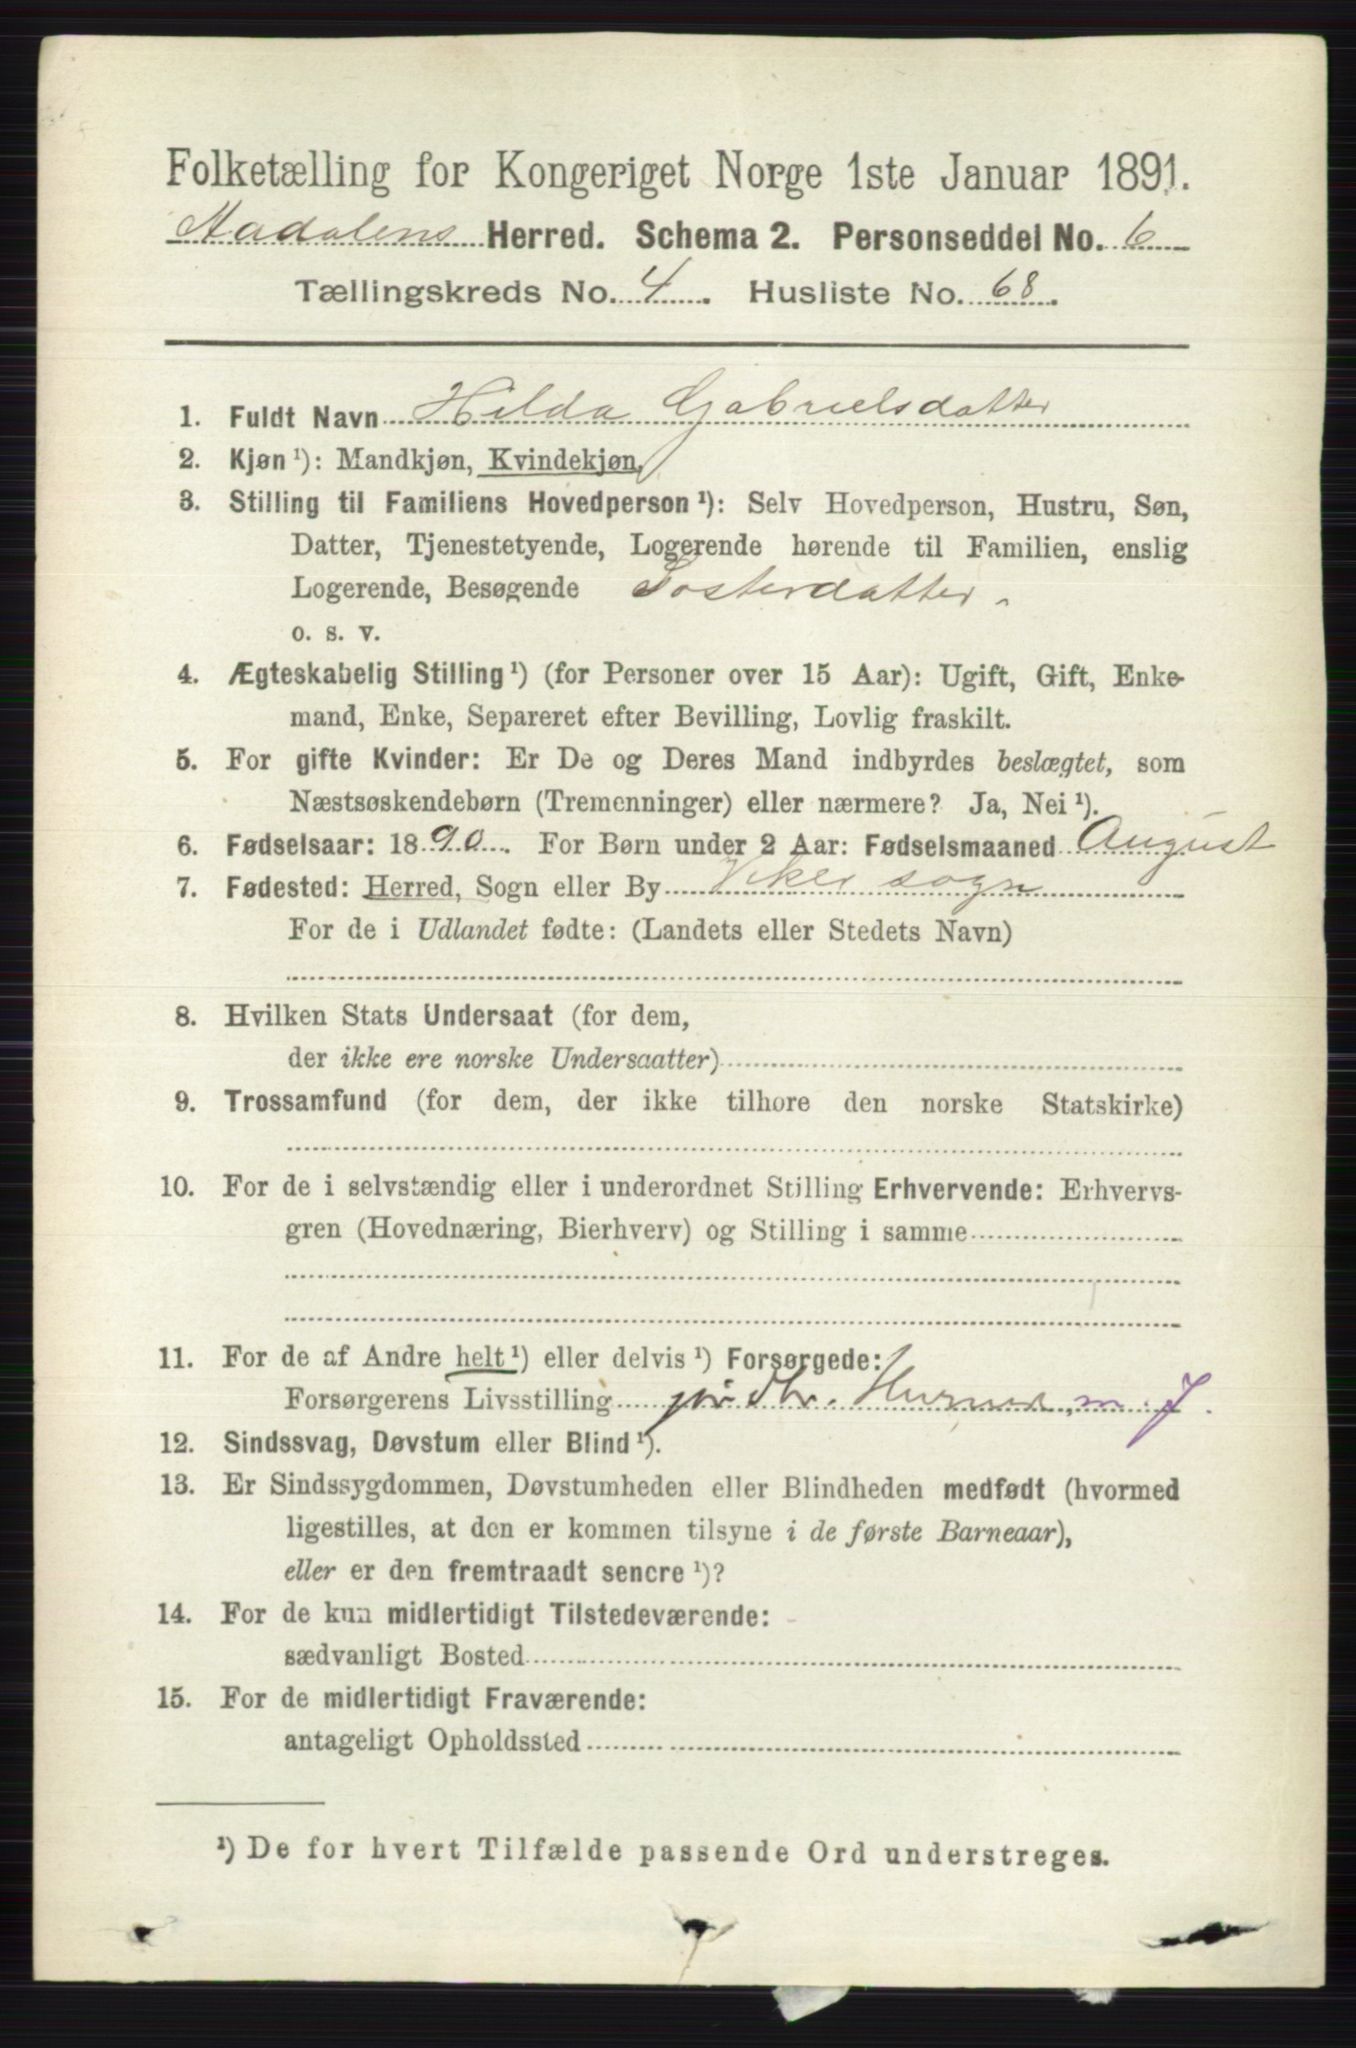 Folketælling for Kongeriget Norge 1ste Januar 1891.
Aadalens Herred. Schema 2. Personseddel No. 6
Tællingskreds No. 4. Husliste No. 68.
1. Fuldt Navn Hilda Gabrielsdatter
2. Kjøn ¹): Mandkjøn, Kvindekjøn,
3. Stilling til Familiens Hovedperson ¹): Selv Hovedperson, Hustru, Søn,
Datter, Tjenestetyende, Logerende hørende til Familien, enslig
Logerende, Besøgende Fosterdatter.
o. s. v.
4. Ægteskabelig Stilling ¹) (for Personer over 15 Aar): Ugift, Gift, Enke-
mand, Enke, Separeret efter Bevilling, Lovlig fraskilt.
5. For gifte Kvinder: Er De og Deres Mand indbyrdes beslægtet, som
Næstsøskendebørn (Tremenninger) eller nærmere? Ja, Nei ¹).
6. Fødselsaar: 1890. For Børn under 2 Aar: Fødselsmaaned August
7. Fødested: Herred, Sogn eller By Viker sogn
For de i Udlandet fødte: (Landets eller Stedets Navn)
8. Hvilken Stats Undersaat (for dem,
der ikke ere norske Undersaatter)
9. Trossamfund (for dem, der ikke tilhøre den norske Statskirke)
10. For de i selvstændig eller i underordnet Stilling Erhvervende: Erhvervs-
gren (Hovednæring, Bierhverv) og Stilling i samme
11. For de af Andre helt ¹) eller delvis ¹) Forsørgede:
Forsørgerens Livsstilling m. J.
12. Sindssvag, Døvstum eller Blind ¹).
13. Er Sindssygdommen, Døvstumheden eller Blindheden medfødt (hvormed
ligestilles, at den er kommen tilsyne i de første Barneaar),
eller er den fremtraadt senere ¹)?
14. For de kun midlertidigt Tilstedeværende:
sædvanligt Bosted
15. For de midlertidigt Fraværende:
antageligt Opholdssted
¹) De for hvert Tilfælde passende Ord understreges.